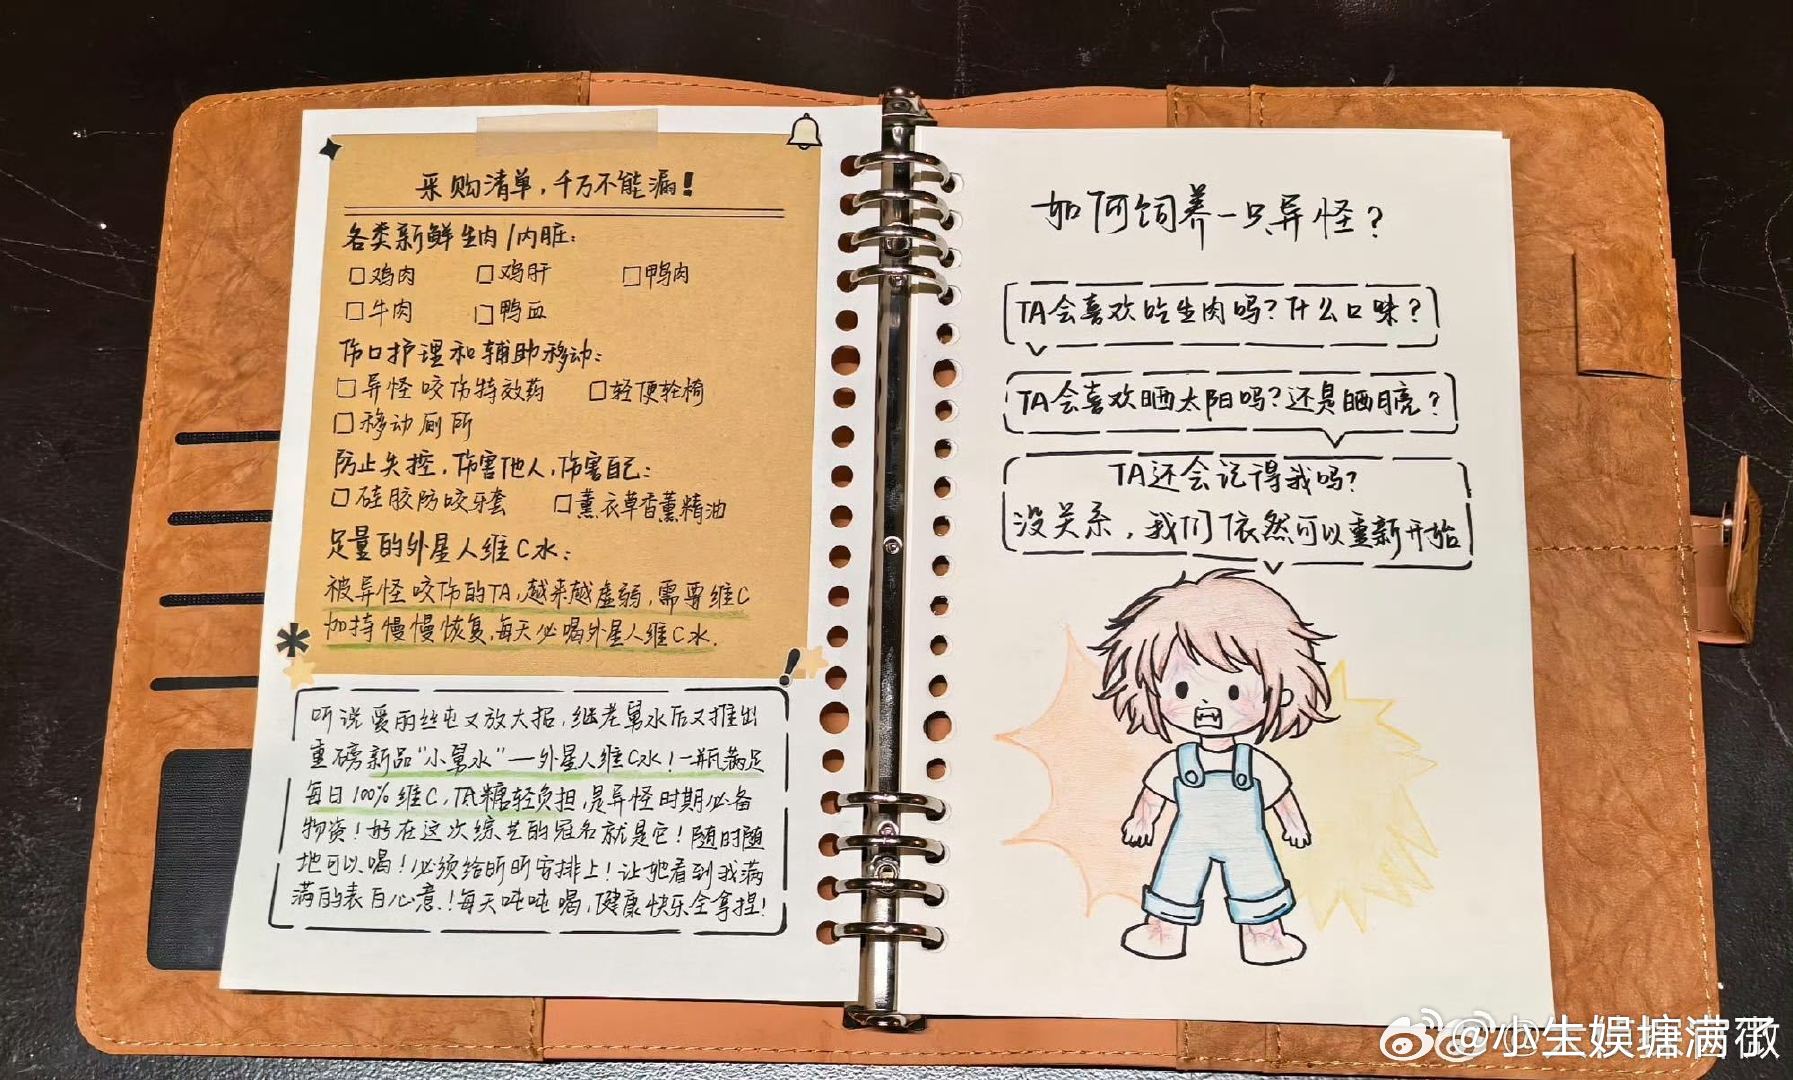 采购清单,千万不能漏!
各类新鲜生肉/内脏:
鸡肉 鸡肝 鸭肉
牛肉 鸭血
伤口护理和辅助移动:
异怪咬伤特效药 轻便轮椅
移动厕所
防止失控,伤害他人,伤害自己:
硅胶防咬牙套 薰衣草香薰精油
足量的外星人维C水:
被异怪咬伤的TA,越来越虚弱,需要维C
加持慢慢恢复,每天必喝外星人维C水.
听说爱丽丝屯又放大招,继老舅水后又推出
重磅新品"小舅水"—外星人维C水!一瓶满足
每日100%维C,低糖轻负担,是异怪时期必备
物资!好在这次综艺的冠名就是它!随时随
地可以喝!必须给昕昕安排上!让她看到我满
满的表白心意!每天吨吨喝,健康快乐全拿捏!
如何饲养一只异怪?
TA会喜欢吃生肉吗?什么口味?
TA会喜欢晒太阳吗?还是晒月亮?
TA还会记得我吗?
没关系,我们依然可以重新开始
@小生娱塘满